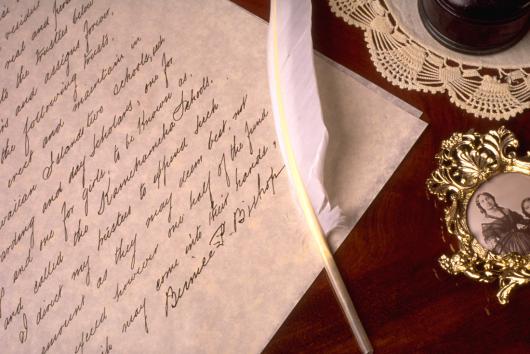 residue
real and
to the trustees below
and assigns
the following trusts,
erect and maintain in
waiian Islands two schools, each
oarding and day scholars, one for
and one for girls, to be known as,
and called the Kamehameha Schools.
I direct my trustees to expend such
amount as they may deem best, not
however one half of the fund
may come into their hands,
Bernice P. Bishop